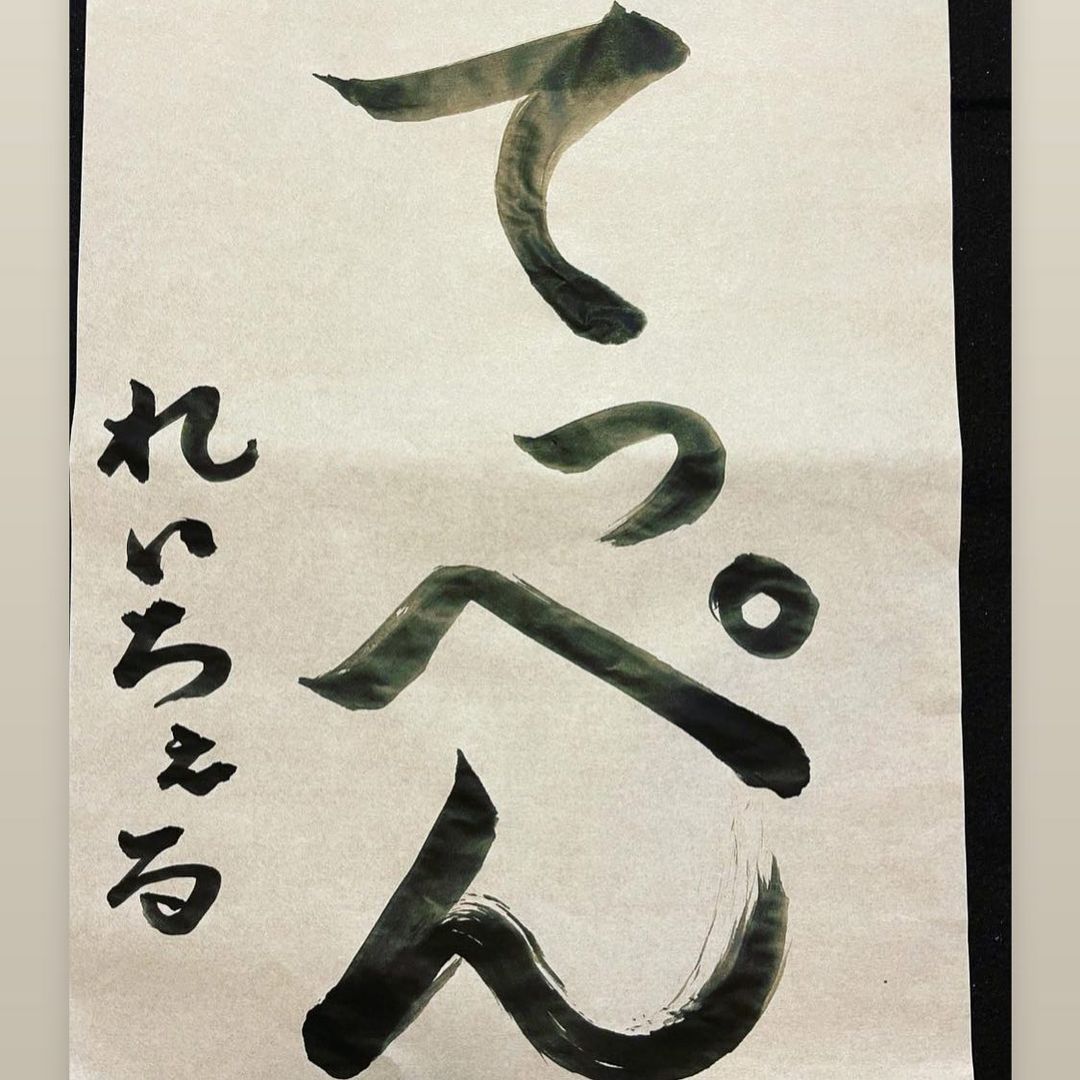 てっぺん
れいちぇる